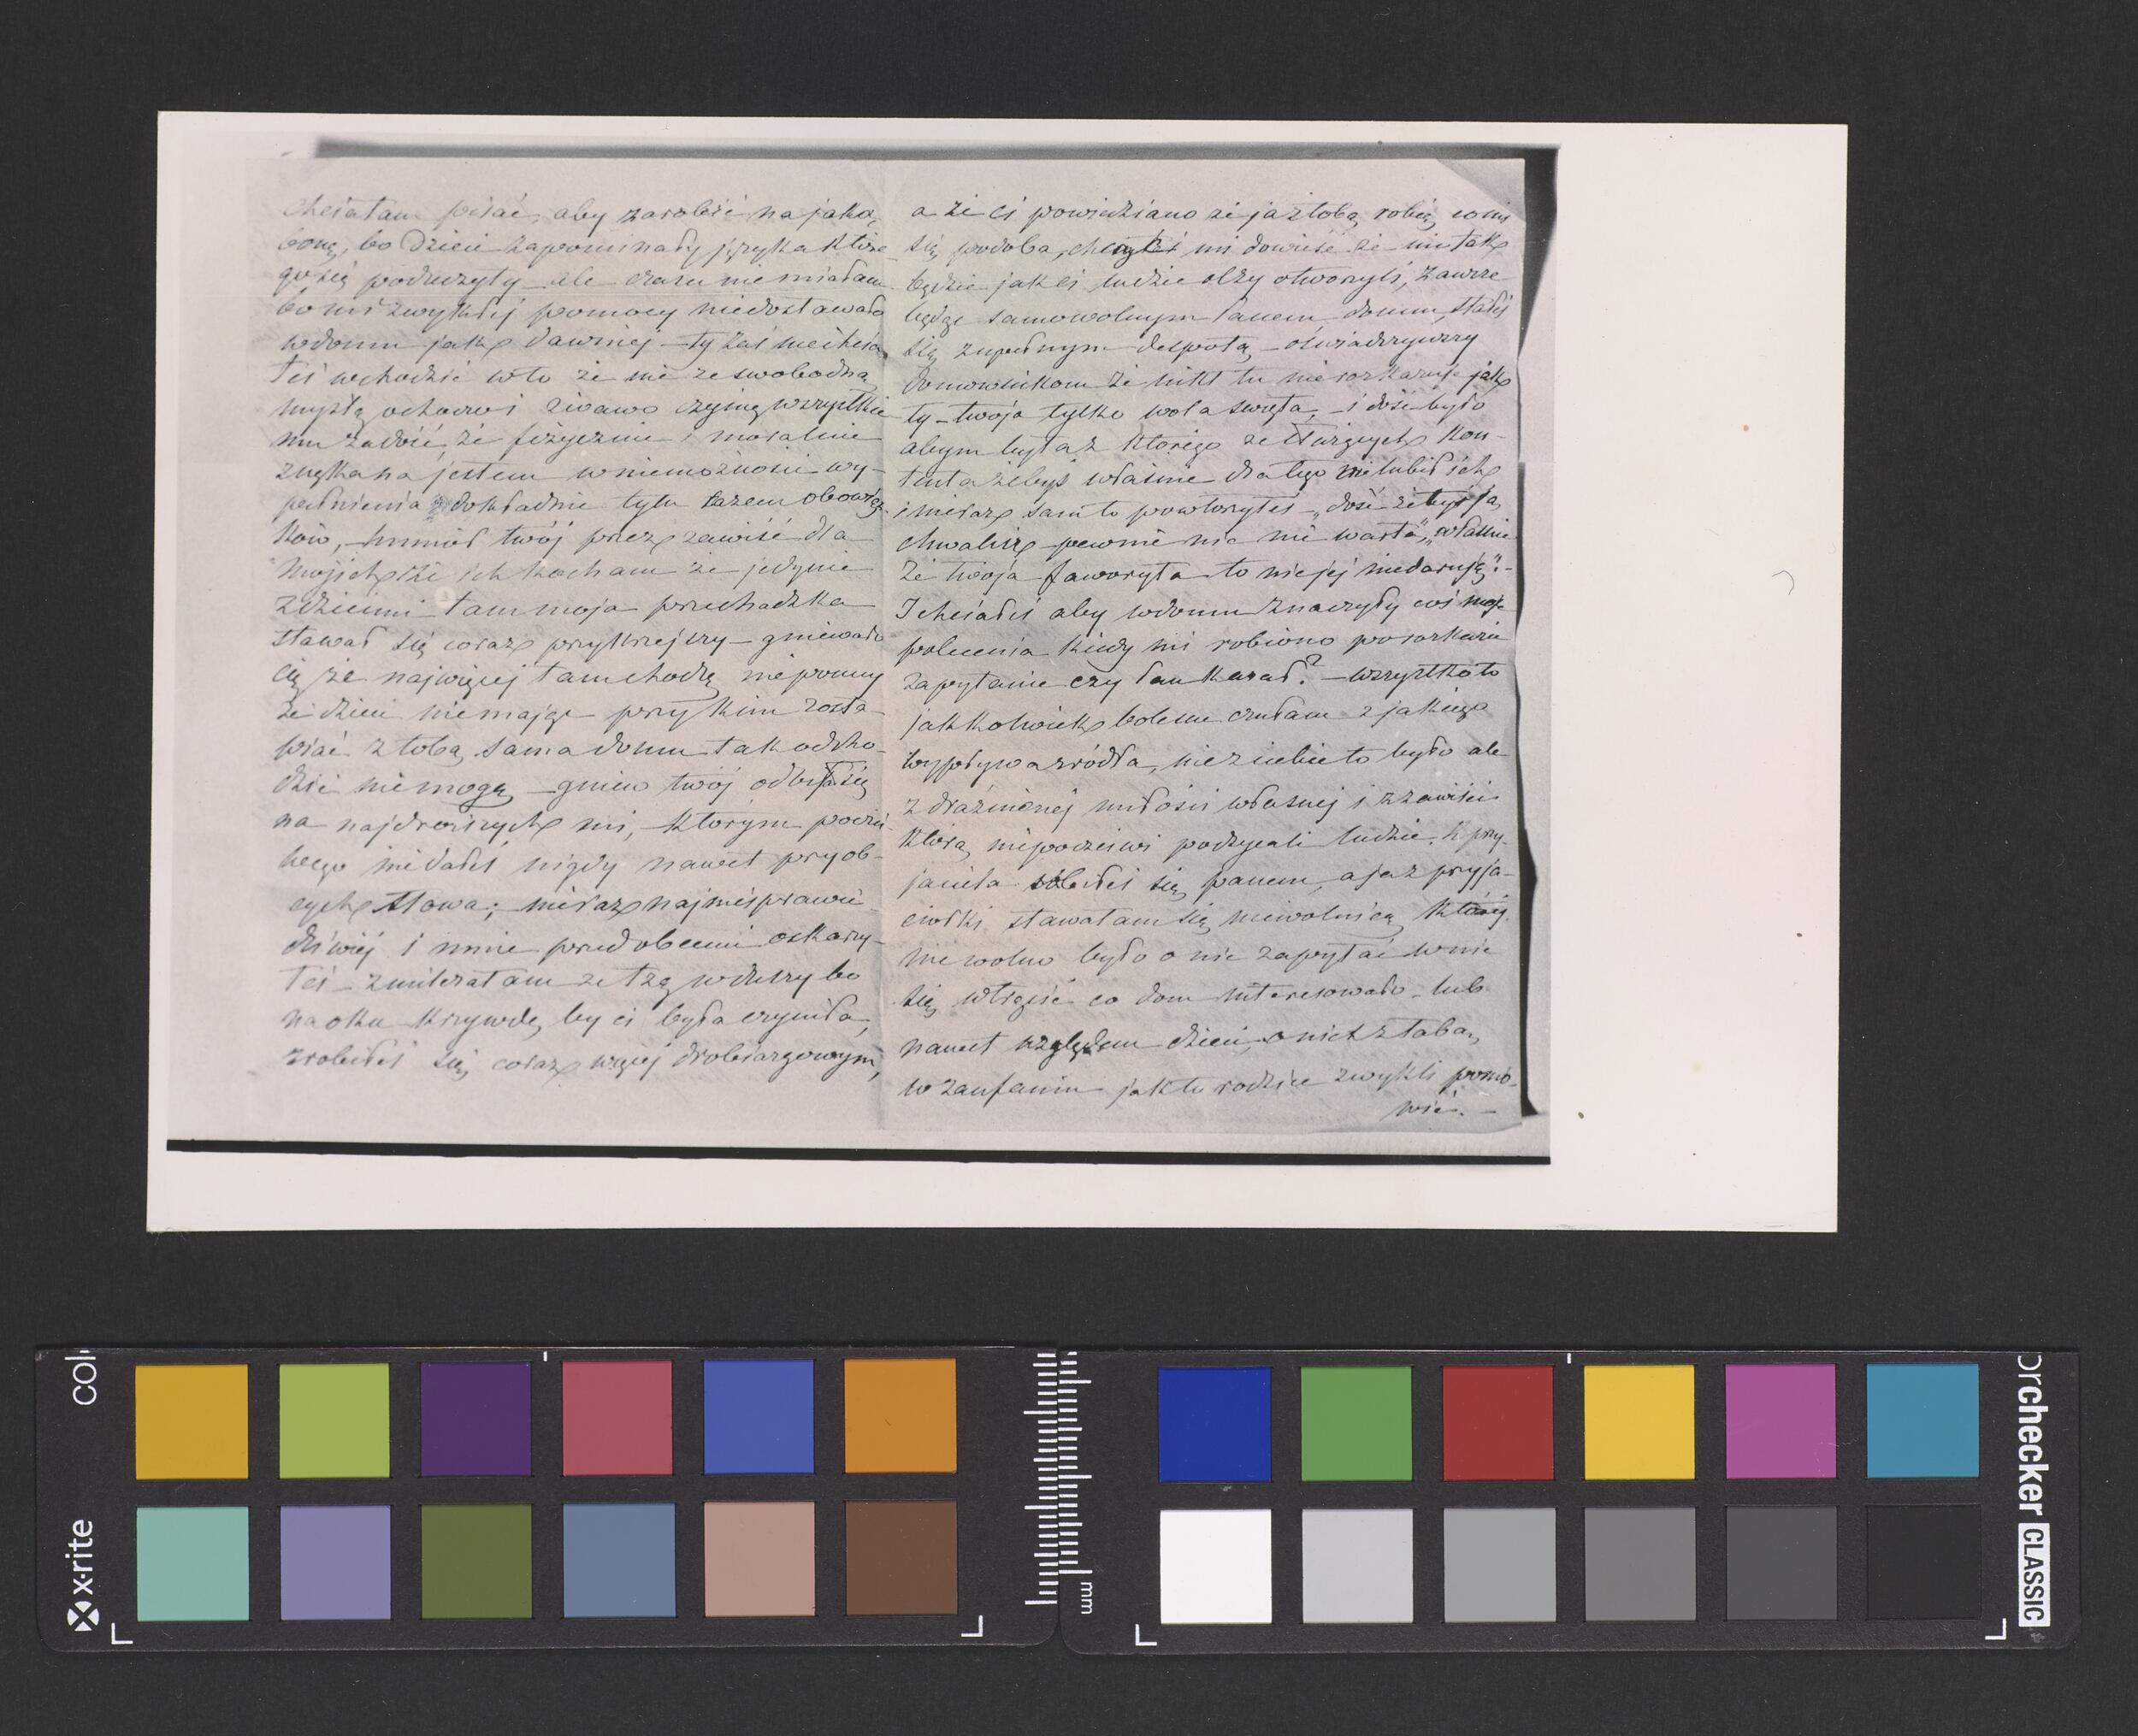 chciałam pisać, aby zarobić na jaką
bonę, bo dzieci zapominały języka które
go się poduczyły ale czasu nie miałam
bo mi zwykłej pomocy niedostawało
wdomu jak dawniej – ty zaś niechcia
łeś wchodzić wto że nie ze swobodną
myślą ochoczo i żwawo czynię wszystkie
mu zadość, że fizycznie i moralnie
znękana jestem w niemożności wy-
pełnienia dokładnie tylu razem obowiąz-
ków, – humor twój przez zawiść dla
moich, że ich kocham że jedynie
zdziećmi tam moja przechadzka
stawał się coraz przykrzejszy – gniewało
cię że najwięcej tam chodzę niepomny
że dzieci niemając przy kim zosta-
wiać z tobą sama domu tak odcho-
dzić niemogę – gniew twój odbijał się
na najdroższych mi, którym poczci-
wego niedałeś nigdy nawet przy ob-
cych słowa; nieraz najniesprawie-
dliwiej i mnie przed obcemi oskarży-
łeś – zmilczałam ze łzą w duszy bo
na oku krzywdę by ci była czyniła,
zrobiłeś się coraz więcej drobiazgowym,
a że ci powiedziano że ja z tobą robię, co mi
się podoba, chciałeś mi dowieść że nie tak
będzie jak ci ludzie oczy otworzyli, zawsze
będąc samowolnym Panem domu, stałeś
się zupełnym despotą – oświadczywszy
domownikom że nikt tu nie rozkazuje jak
ty – twoja tylko wola święta, – i dość było
abym była z którego ze służących kon-
tenta żebyś właśnie dla tego nie lubił ich
i nieraz sam to powtórzyłeś – „dość żebyś ją
chwaliła pewnie nic nie warta", „właśnie
że twoja faworyta to nic jej niedaruję". –
I chciałeś aby wdomu znaczyły coś moje
polecenia kiedy mi robiono po rozkazie
zapytanie czy Pan kazał? – wszystko to
jakkolwiek bolesne czułam z jakiego
wypływa źródła, nie z ciebie to było ale
z draźnionej miłości własnej i z zawiści
którą niepoczciwi podżegali ludzie. Z przy-
jaciela robiłeś się panem, a ja z przyja-
ciółki stawałam się niewolnicą której
nie wolno było o nic zapytać w nic
się wtrącić co dom interesowało – lub
nawet względem dzieci, o nich z tobą
w zaufaniu jak to rodzice zwykli pomó-
wić. –
col
x·rite
mm
orchecker CLASSIC